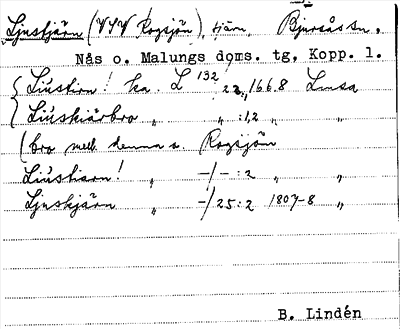 Ljustjärn (VSV Rogsjön), tjärn, Bjursås sn,
Nås o. Malungs doms. tg, Kopp. l.
Liustiern! ka. L 132 22, 1668 Lmsa
Liuskiärbro „ „ :12 „ „
(bro mell. denna o. Rogsjön
Liustiarn! „ -/- :2 „ „
Ljuskjärn „ -/25:2 1807-8 „
B. Lindén